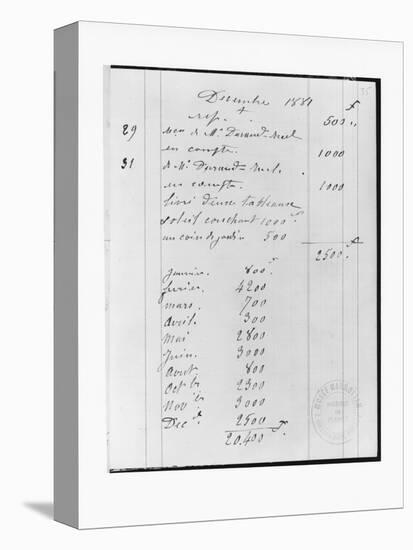 Decembre 1881 f
rep. 500 "
29 reçu de Mr Durand-Ruel
en compte. 1000
31 de Mr Durand-Ruel.
en compte. 1000
livré deux tableaux
soleil couchant 1000 f
un coin de jardin 500
2500 f
Janvier. 800 f
fevrier. 4200
mars. 700
Avril. 300
Mai 2800
Juin. 3000
Aout 800
Octbre 2300
Novbre 3000
Dec 2500
20.400 f
35
MUSÉE MARMOTTAN